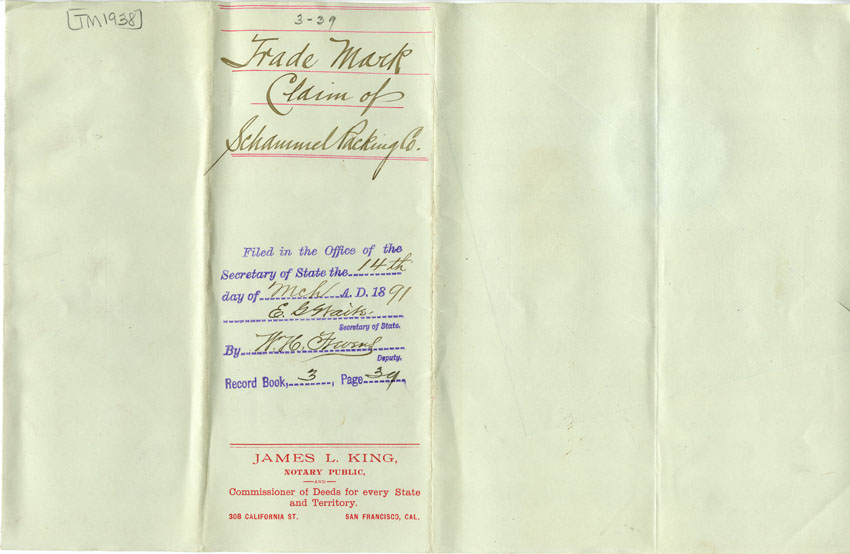 [TM1938]
3-39
Trade Mark
Claim of
Schammel Packing Co.
Filed in the Office of the
Secretary of State the 14th
day of Mch A. D. 1891
E. G. Waite
Secretary of State.
By W. H.
Deputy.
Record Book, 3, Page 39
JAMES L. KING,
NOTARY PUBLIC,
AND
Commissioner of Deeds for every State
and Territory.
308 CALIFORNIA ST. SAN FRANCISCO, CAL.